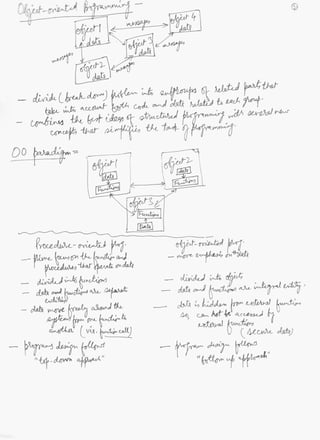 Object-oriented Programming —
object 1
data
messages
object 4
data
messages
object 3
data
messages
messages
object 2
data
messages
— divide (break down) problem into subgroups of related parts that
take into account both code and data related to each group.
— combines the best ideas of structured programming with several new
concepts that simplifies the task of programming.
OO paradigm =
object 1
data
Functions
object 2
data
Functions
object 3
Functions
Data
Procedure-oriented prog.
— prime focus on the function and
procedures that operate on data
— divided into functions
— data and functions are separate
entities
— data move freely around the
system from one function to
another (via function call)
— program design follows
"top-down approach"
object-oriented prog
— more emphasis on data
— divided into objects
— data and functions are integral entity.
— data is hidden from external function
so, can not be accessed by
external functions
(secure data)
— program design follows
"bottom up approach"